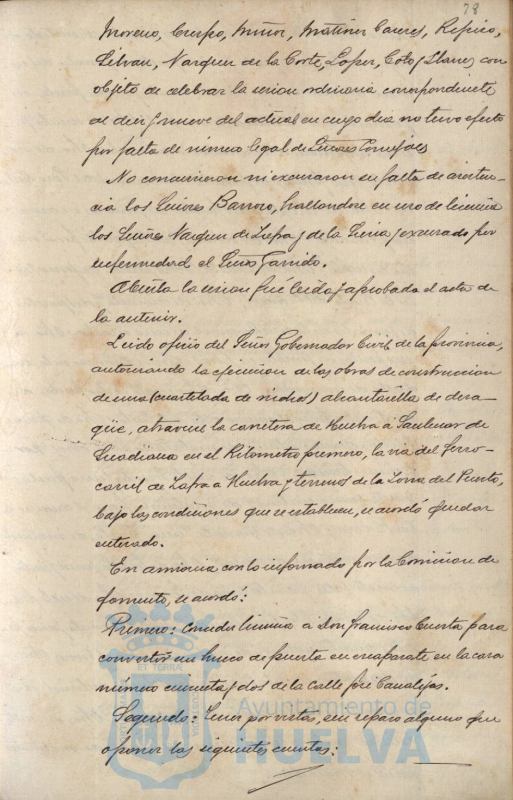 78
Moreno, Crespo, Muñoz, Martinez Caceres, Repiso,
Silvan, Vazquez de la Corte, Lopez, Coto y Llanes con
objeto de celebrar la sesion ordinaria correspondiente
al diez y nueve del actual en cuyo dia no tuvo efecto
por falta de número legal de Señores Concejales
No concurrieron ni excusaron su falta de asisten-
cia los Señores Barroso, hallandose en uso de licencia
los Señores Vazquez de Zafra y de la Feria y excusado por
enfermedad el Señor Garrido.
Abierta la sesion fué leida y aprobada el acta de
la anterior.
Leido oficio del Señor Gobernador Civil de la provincia,
autorizando la ejecucion de las obras de construccion
de una (cuartelada de nichos) alcantarilla de desa-
güe, atraviese la carretera de Huelva á Sanlucar de
Guadiana en el Kilometro primero, la via del ferro-
carril de Zafra a Huelva y terrenos de la Zona del Puerto,
bajo las condiciones que se establecen, se acordó quedar
enterado.
En armonia con lo informado por la Comision de
fomento, se acordó:
Primero: Conceder licencia á Don Francisco Cuesta para
convertir un hueco de puerta en escaparate en la casa
número cincuenta y dos de la calle José Canalejas.
Segundo: Tener por vistas, sin reparo alguno que
oponer las siguientes cuentas:
Ayuntamiento de
HUELVA